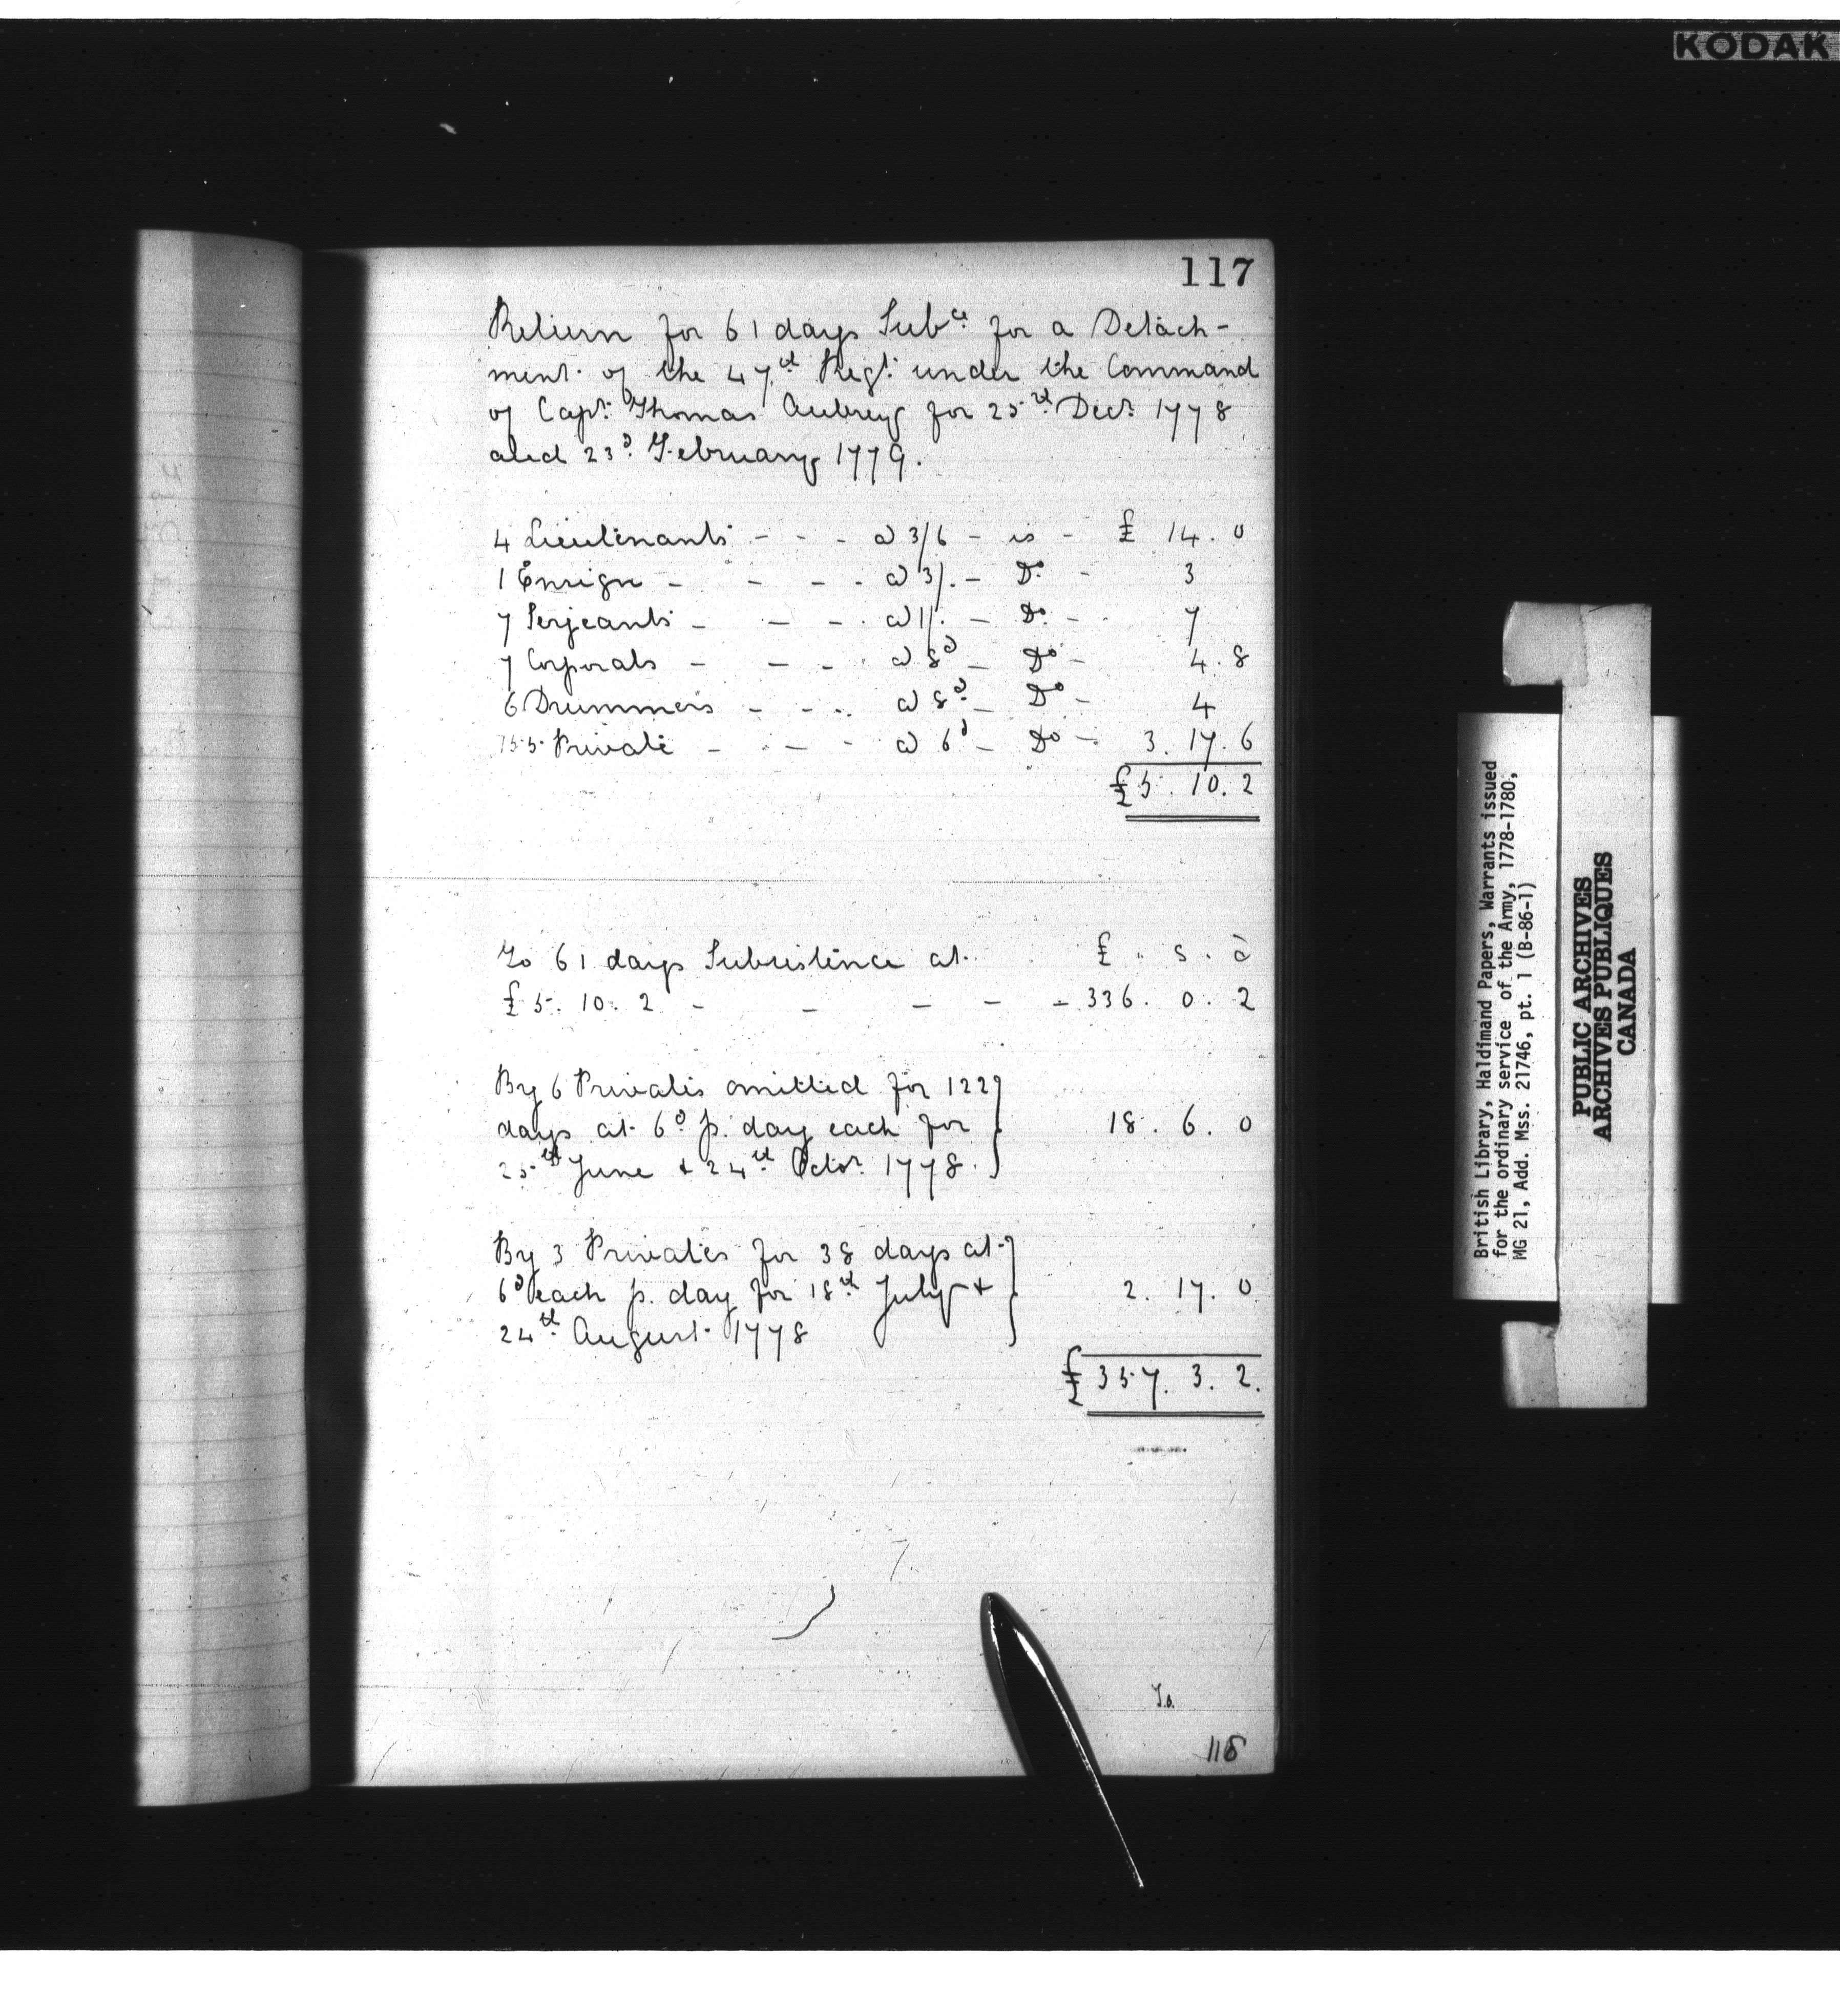 KODAK
117
Return for 61 days Subce. for a Detach-
ment of the 47th Regt. under the Command
of Capt. Thomas Aubrey for 25th Decr. 1778
and 23d. February 1779.
4 Lieutenants - - - @ 3/6 - is - £ 14. 0
1 Ensign - - - - @ 3/. - Do. - 3
7 Serjeants - - - . @ 1/. - Do. - 7
7 Corporals - - - . @ 8d - Do - 4. 8
6 Drummers - - - . @ 8d. - Do - 4
155 Private - - - - @ 6d - Do - 3. 17. 6
£5. 10. 2
To 61 days Subsistence at £ . s . d
£5. 10. 2 - - - - - 336. 0. 2
By 6 Privates omitted for 122
days at 6d p. day each for 18. 6. 0
25th June & 24th Octor. 1778.
By 3 Privates for 38 days at
6d each p. day for 18th July & 2. 17. 0
24th August 1778
£357. 3. 2.
To.
118
British Library, Haldimand Papers, Warrants issued
for the ordinary service of the Army, 1778-1780,
MG 21, Add. Mss. 21746, pt. 1 (B-86-1)
PUBLIC ARCHIVES
ARCHIVES PUBLIQUES
CANADA